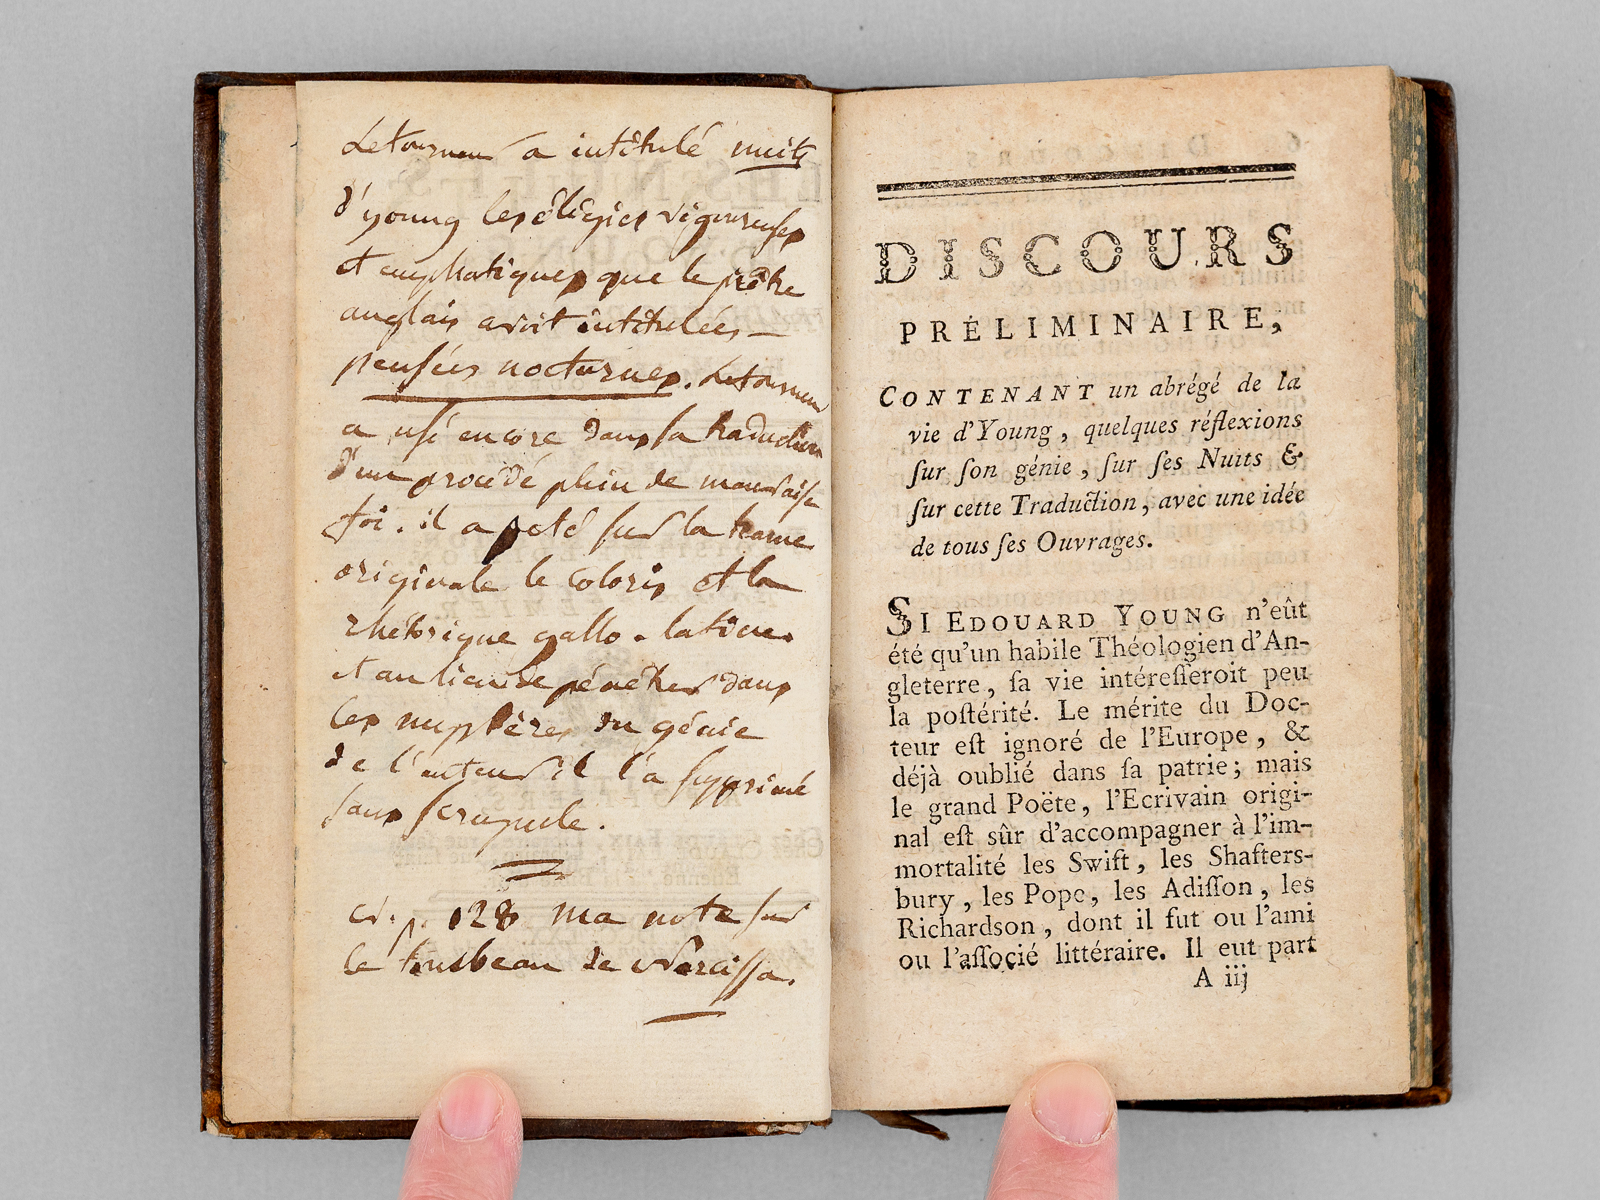 Letourneur a intitulé nuits
d'young les élégies vigoureuses
et emphatiques que le prêtre
anglais avoit intitulées
pensées nocturnes. Letourneur
a usé encore dans sa traduction
d'un procédé plein de mauvaise
foi. il a jeté sur la trame
originale le coloris et la
rhétorique gallo-latine
et au lieu de pénétrer dans
les mystères du génie
de l'auteur il l'a supprimé
sans scrupule.
p. 128 ma note sur
le tombeau de Narcissa.
DISCOURS
PRÉLIMINAIRE,
CONTENANT un abrégé de la
vie d'Young, quelques réflexions
ſur ſon génie, ſur ſes Nuits &
ſur cette Traduction, avec une idée
de tous ſes Ouvrages.
SI EDOUARD YOUNG n'eût
été qu'un habile Théologien d'An-
gleterre, ſa vie intéreſſeroit peu
la poſtérité. Le mérite du Doc-
teur eſt ignoré de l'Europe, &
déjà oublié dans ſa patrie; mais
le grand Poëte, l'Ecrivain origi-
nal eſt sûr d'accompagner à l'im-
mortalité les Swift, les Shafters-
bury, les Pope, les Adiſſon, les
Richardson, dont il fut ou l'ami
ou l'aſſocié littéraire. Il eut part
A iij